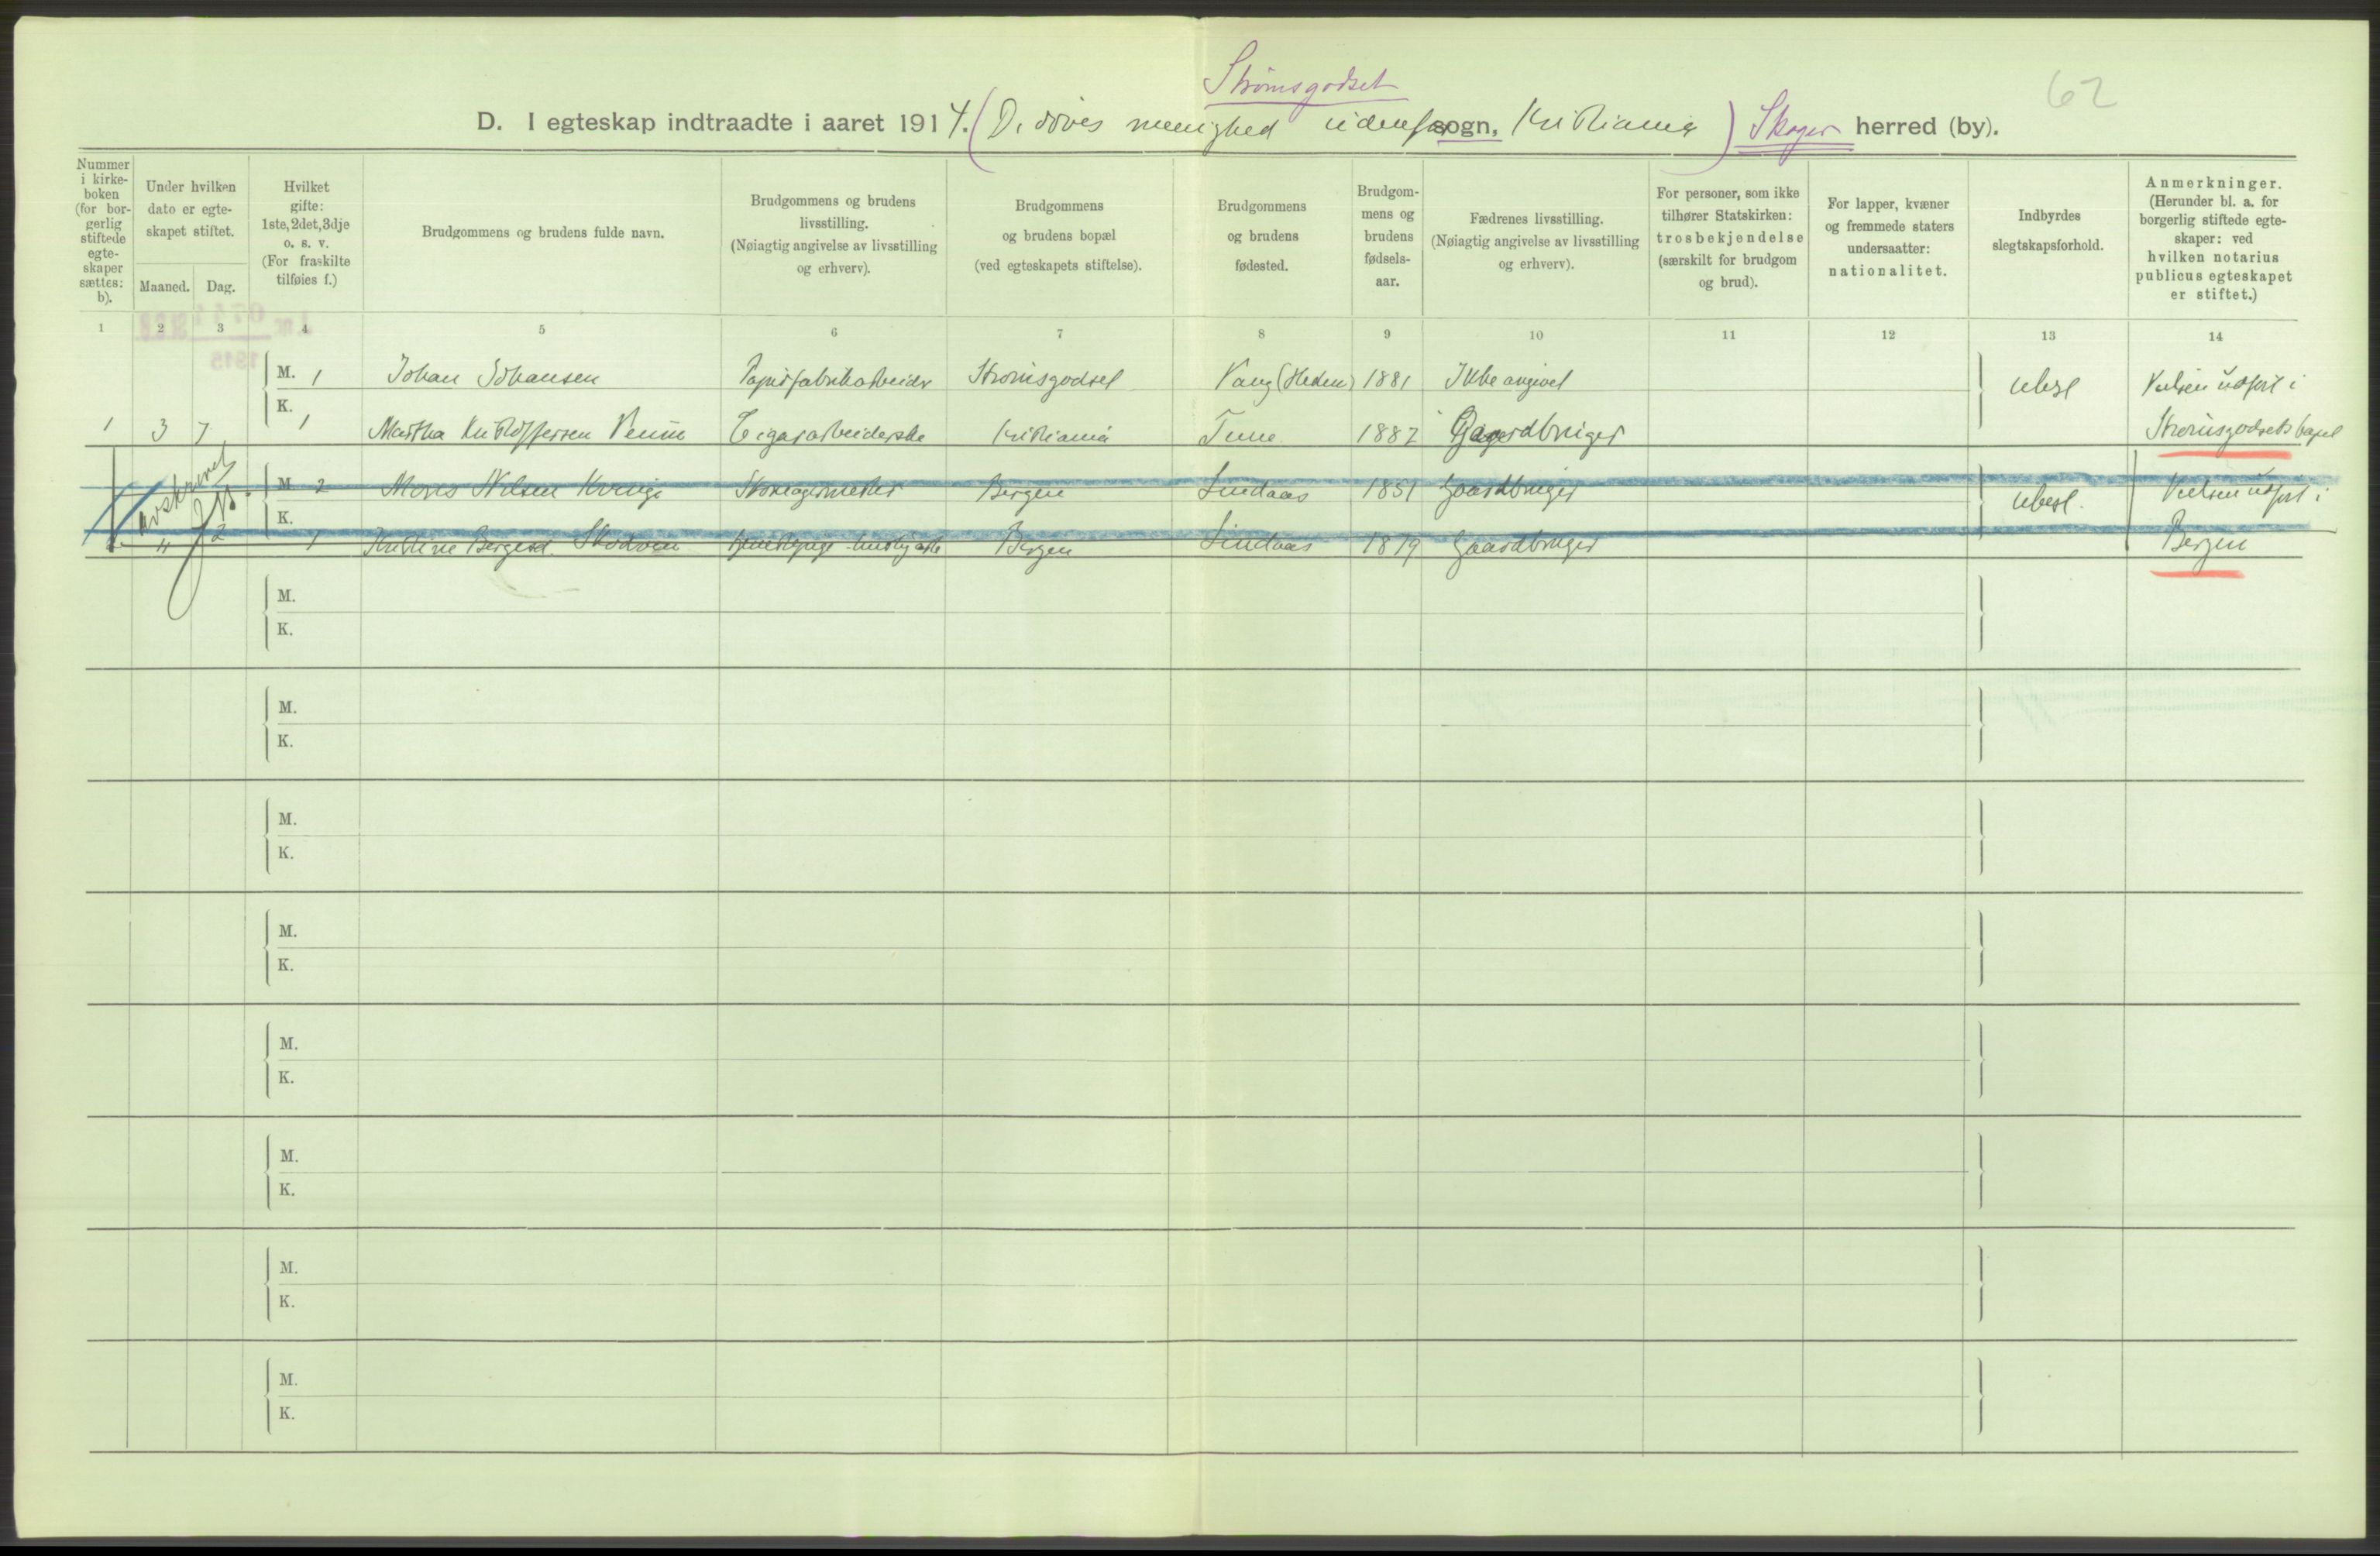 Strømsgodset
62
D. I egteskap indtraadte i aaret 1914. (De døves menighed udenfor sogn, Kristiania) Skoger herred (by).
Nummer i kirke-boken (for bor-gerlig stiftede egte-skaper sættes: b).
Under hvilken dato er egte-skapet stiftet.
Maaned. Dag.
Hvilket gifte: 1ste, 2det, 3dje o. s. v. (For fraskilte tilføies f.)
Brudgommens og brudens fulde navn.
Brudgommens og brudens livsstilling. (Nøiagtig angivelse av livsstilling og erhverv).
Brudgommens og brudens bopæl (ved egteskapets stiftelse).
Brudgommens og brudens fødested.
Brudgom-mens og brudens fødsels-aar.
Fædrenes livsstilling. (Nøiagtig angivelse av livsstilling og erhverv).
For personer, som ikke tilhører Statskirken: trosbekjendelse (særskilt for brudgom og brud).
For lapper, kvæner og fremmede staters undersaatter: nationalitet.
Indbyrdes slegtskapsforhold.
Anmerkninger. (Herunder bl. a. for borgerlig stiftede egte-skaper: ved hvilken notarius publicus egteskapet er stiftet.)
1 2 3 4 5 6 7 8 9 10 11 12 13 14
M. 1 Johan Johansen Papirfabrikarbeider Strømsgodset Vang (Hedem) 1881 Ikke angivet ubesl Vielsen udført i
K. 1
1 3 7 Martha Kristoffersen Cigararbeiderske Kristiania Tune 1887 Gaardbruger Strømsgodsets kapel
avskrevet
M. 2 Mons Nilsen Kvinge Skomagermester Bergen Lindaas 1851 Gaardbruger ubesl. Vielsen udført i
K.
" 2 1 Kristine Bergesd. Skodvin Bergen Lindaas 1879 Gaardbruger Bergen
M.
K.
M.
K.
M.
K.
M.
K.
M.
K.
M.
K.
M.
K.
M.
K.